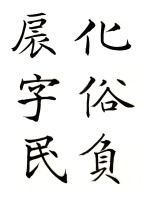 化俗負
扆字民